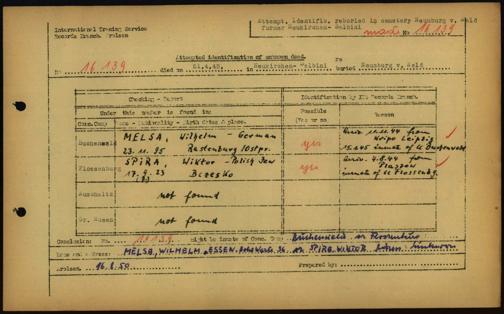 International Tracing Service
Records Branch, Arolsen
Attempt. Identific. reburied in cemetery Neunburg v. Wald
former Neunkirchen- Balbini
No 16 139
Attempted identification of unknown dead.
No 16 139 died on 21.4.45. Neunkirchen- Balbini re buried Neunburg v. Wald
Checking - Report
Identification by ITS Records Branch.
Under this number is found in:
Possible
(Yes or no)
Reason
Conc.Camp Name - Nationality - Birth dates & place.
Buchenwald MELSA, Wilhelm - German
23.11.95 Rastenburg/Ostpr.
yes
Arriv. 11.11.44 from
Kripo Leipzig
15.1.45 inmate of CC Buchenwald
Flossenburg SPIRA, Wiktor - Polish Jew
17.9.23 Brzesko
yes
Arriv. 4.8.44 from
Plaszow
inmate of CC Flossenbg.
Auschwitz not found
Gr. Rosen not found
Conclusion: No. 16139 might be inmate of Conc. Camp Buchenwald or Flossenbürg
Name and Dress: MELSA, WILHELM, ESSEN, 36 or SPIRA WIKTOR,
Arolsen, 16.8.50
Prepared by: